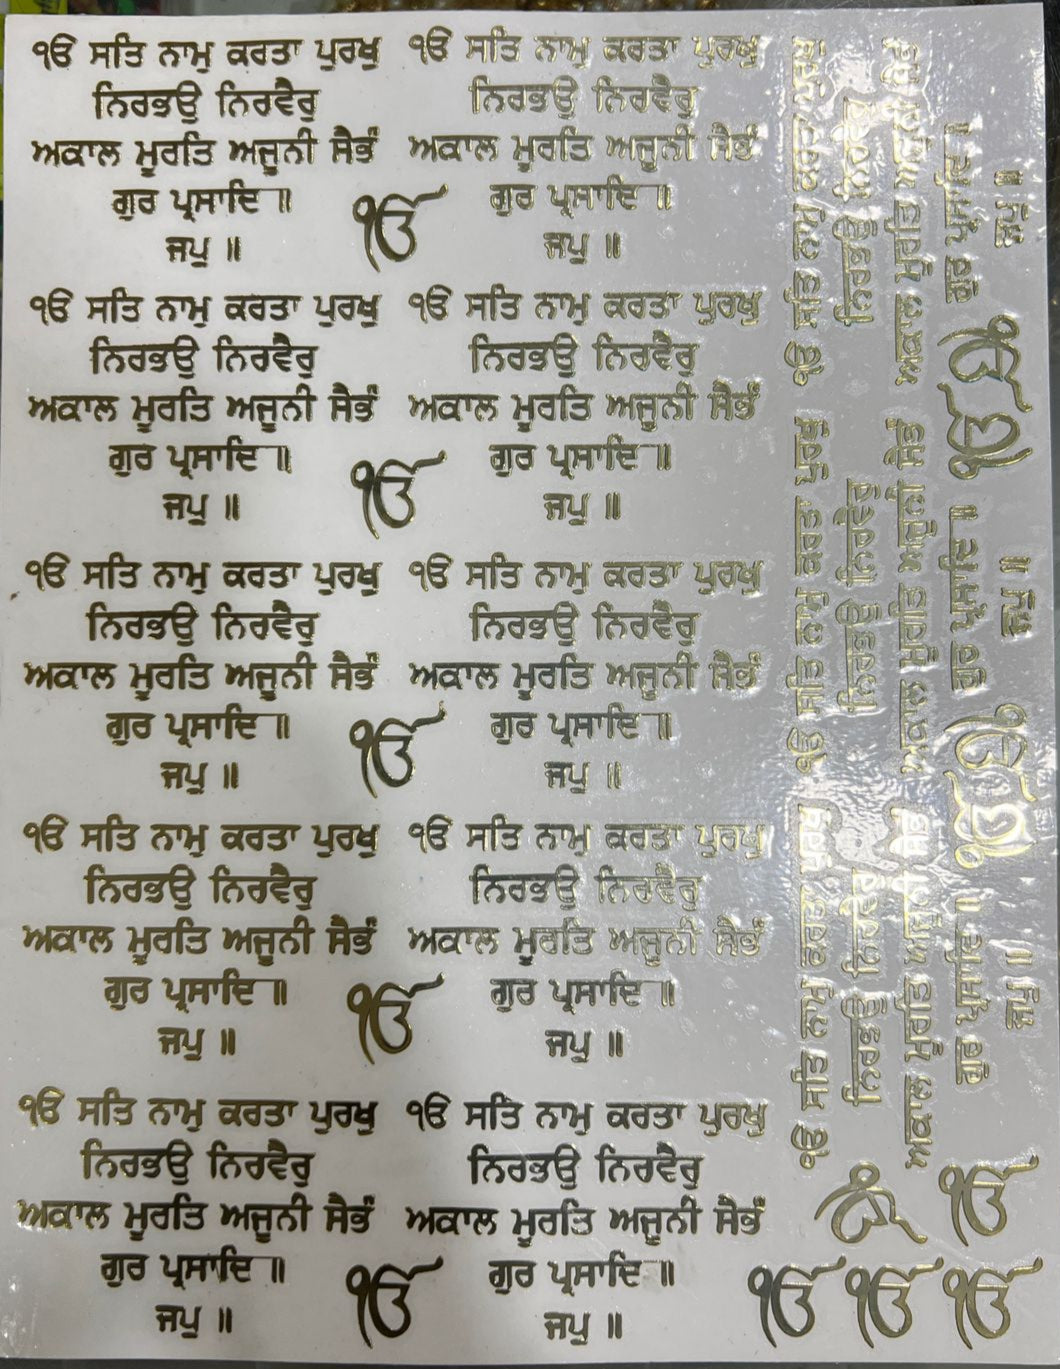 ੴ ਸਤਿ ਨਾਮੁ ਕਰਤਾ ਪੁਰਖੁ
ਨਿਰਭਉ ਨਿਰਵੈਰੁ
ਅਕਾਲ ਮੂਰਤਿ ਅਜੂਨੀ ਸੈਭੰ
ਗੁਰ ਪ੍ਰਸਾਦਿ ॥
ਜਪੁ ॥
ੴ ਸਤਿ ਨਾਮੁ ਕਰਤਾ ਪੁਰਖੁ
ਨਿਰਭਉ ਨਿਰਵੈਰੁ
ਅਕਾਲ ਮੂਰਤਿ ਅਜੂਨੀ ਸੈਭੰ
ਗੁਰ ਪ੍ਰਸਾਦਿ ॥
ਜਪੁ ॥
ੴ
ੴ ਸਤਿ ਨਾਮੁ ਕਰਤਾ ਪੁਰਖੁ
ਨਿਰਭਉ ਨਿਰਵੈਰੁ
ਅਕਾਲ ਮੂਰਤਿ ਅਜੂਨੀ ਸੈਭੰ
ਗੁਰ ਪ੍ਰਸਾਦਿ ॥
ਜਪੁ ॥
ੴ ਸਤਿ ਨਾਮੁ ਕਰਤਾ ਪੁਰਖੁ
ਨਿਰਭਉ ਨਿਰਵੈਰੁ
ਅਕਾਲ ਮੂਰਤਿ ਅਜੂਨੀ ਸੈਭੰ
ਗੁਰ ਪ੍ਰਸਾਦਿ ॥
ਜਪੁ ॥
ੴ
ੴ ਸਤਿ ਨਾਮੁ ਕਰਤਾ ਪੁਰਖੁ
ਨਿਰਭਉ ਨਿਰਵੈਰੁ
ਅਕਾਲ ਮੂਰਤਿ ਅਜੂਨੀ ਸੈਭੰ
ਗੁਰ ਪ੍ਰਸਾਦਿ ॥
ਜਪੁ ॥
ੴ ਸਤਿ ਨਾਮੁ ਕਰਤਾ ਪੁਰਖੁ
ਨਿਰਭਉ ਨਿਰਵੈਰੁ
ਅਕਾਲ ਮੂਰਤਿ ਅਜੂਨੀ ਸੈਭੰ
ਗੁਰ ਪ੍ਰਸਾਦਿ ॥
ਜਪੁ ॥
ੴ
ੴ ਸਤਿ ਨਾਮੁ ਕਰਤਾ ਪੁਰਖੁ
ਨਿਰਭਉ ਨਿਰਵੈਰੁ
ਅਕਾਲ ਮੂਰਤਿ ਅਜੂਨੀ ਸੈਭੰ
ਗੁਰ ਪ੍ਰਸਾਦਿ ॥
ਜਪੁ ॥
ੴ ਸਤਿ ਨਾਮੁ ਕਰਤਾ ਪੁਰਖੁ
ਨਿਰਭਉ ਨਿਰਵੈਰੁ
ਅਕਾਲ ਮੂਰਤਿ ਅਜੂਨੀ ਸੈਭੰ
ਗੁਰ ਪ੍ਰਸਾਦਿ ॥
ਜਪੁ ॥
ੴ
ੴ ਸਤਿ ਨਾਮੁ ਕਰਤਾ ਪੁਰਖੁ
ਨਿਰਭਉ ਨਿਰਵੈਰੁ
ਅਕਾਲ ਮੂਰਤਿ ਅਜੂਨੀ ਸੈਭੰ
ਗੁਰ ਪ੍ਰਸਾਦਿ ॥
ਜਪੁ ॥
ੴ ਸਤਿ ਨਾਮੁ ਕਰਤਾ ਪੁਰਖੁ
ਨਿਰਭਉ ਨਿਰਵੈਰੁ
ਅਕਾਲ ਮੂਰਤਿ ਅਜੂਨੀ ਸੈਭੰ
ਗੁਰ ਪ੍ਰਸਾਦਿ ॥
ਜਪੁ ॥
ੴ
ੴ ਸਤਿ ਨਾਮੁ ਕਰਤਾ ਪੁਰਖੁ
ਨਿਰਭਉ ਨਿਰਵੈਰੁ
ਅਕਾਲ ਮੂਰਤਿ ਅਜੂਨੀ ਸੈਭੰ
ਗੁਰ ਪ੍ਰਸਾਦਿ ॥
ਜਪੁ ॥
ੴ
ੴ
ੴ ਸਤਿ ਨਾਮੁ ਕਰਤਾ ਪੁਰਖੁ
ਨਿਰਭਉ ਨਿਰਵੈਰੁ
ਅਕਾਲ ਮੂਰਤਿ ਅਜੂਨੀ ਸੈਭੰ
ਗੁਰ ਪ੍ਰਸਾਦਿ ॥
ਜਪੁ ॥
ੴ
ੴ
ੴ ਸਤਿ ਨਾਮੁ ਕਰਤਾ ਪੁਰਖੁ
ਨਿਰਭਉ ਨਿਰਵੈਰੁ
ਅਕਾਲ ਮੂਰਤਿ ਅਜੂਨੀ ਸੈਭੰ
ਗੁਰ ਪ੍ਰਸਾਦਿ ॥
ਜਪੁ ॥
ੴ ੴ
ੴ ੴ ੴ